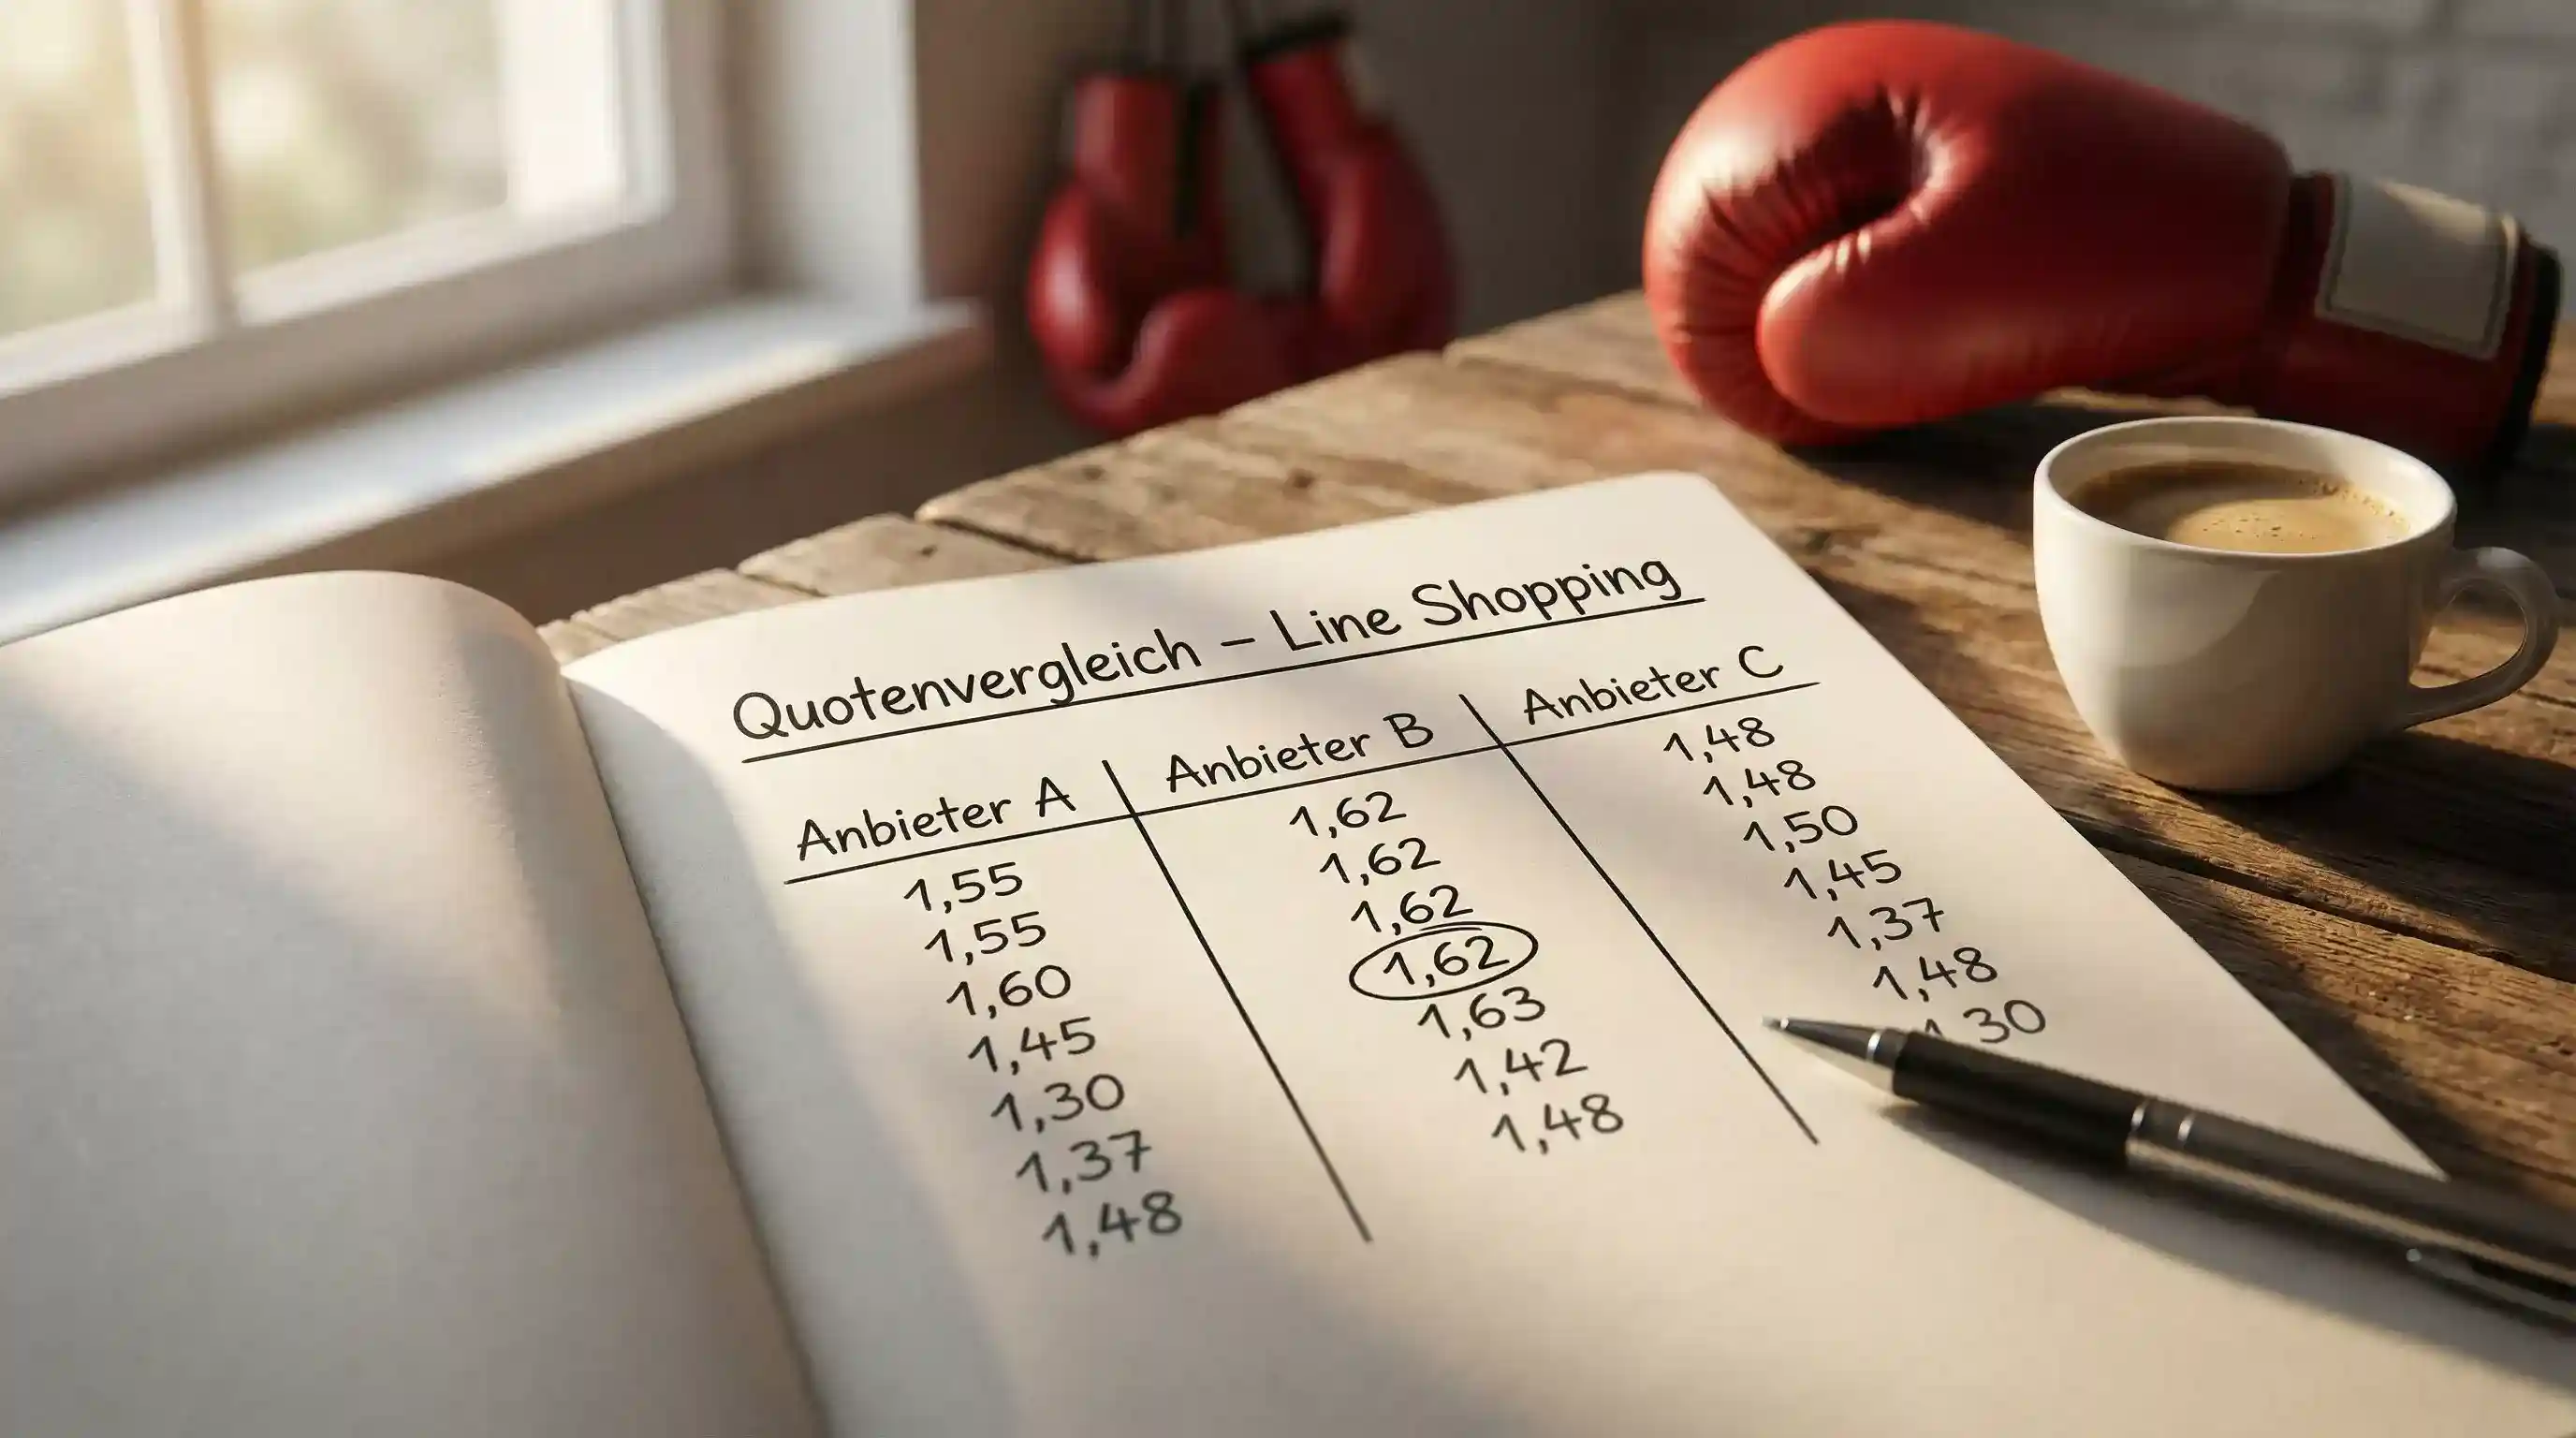 Quotenvergleich – Line Shopping
Anbieter A Anbieter B Anbieter C
1,55 1,62 1,48
1,55 1,62 1,48
1,60 1,62 1,50
1,45 1,62 1,45
1,30 1,63 1,37
1,37 1,42 1,48
1,48 1,48 1,30